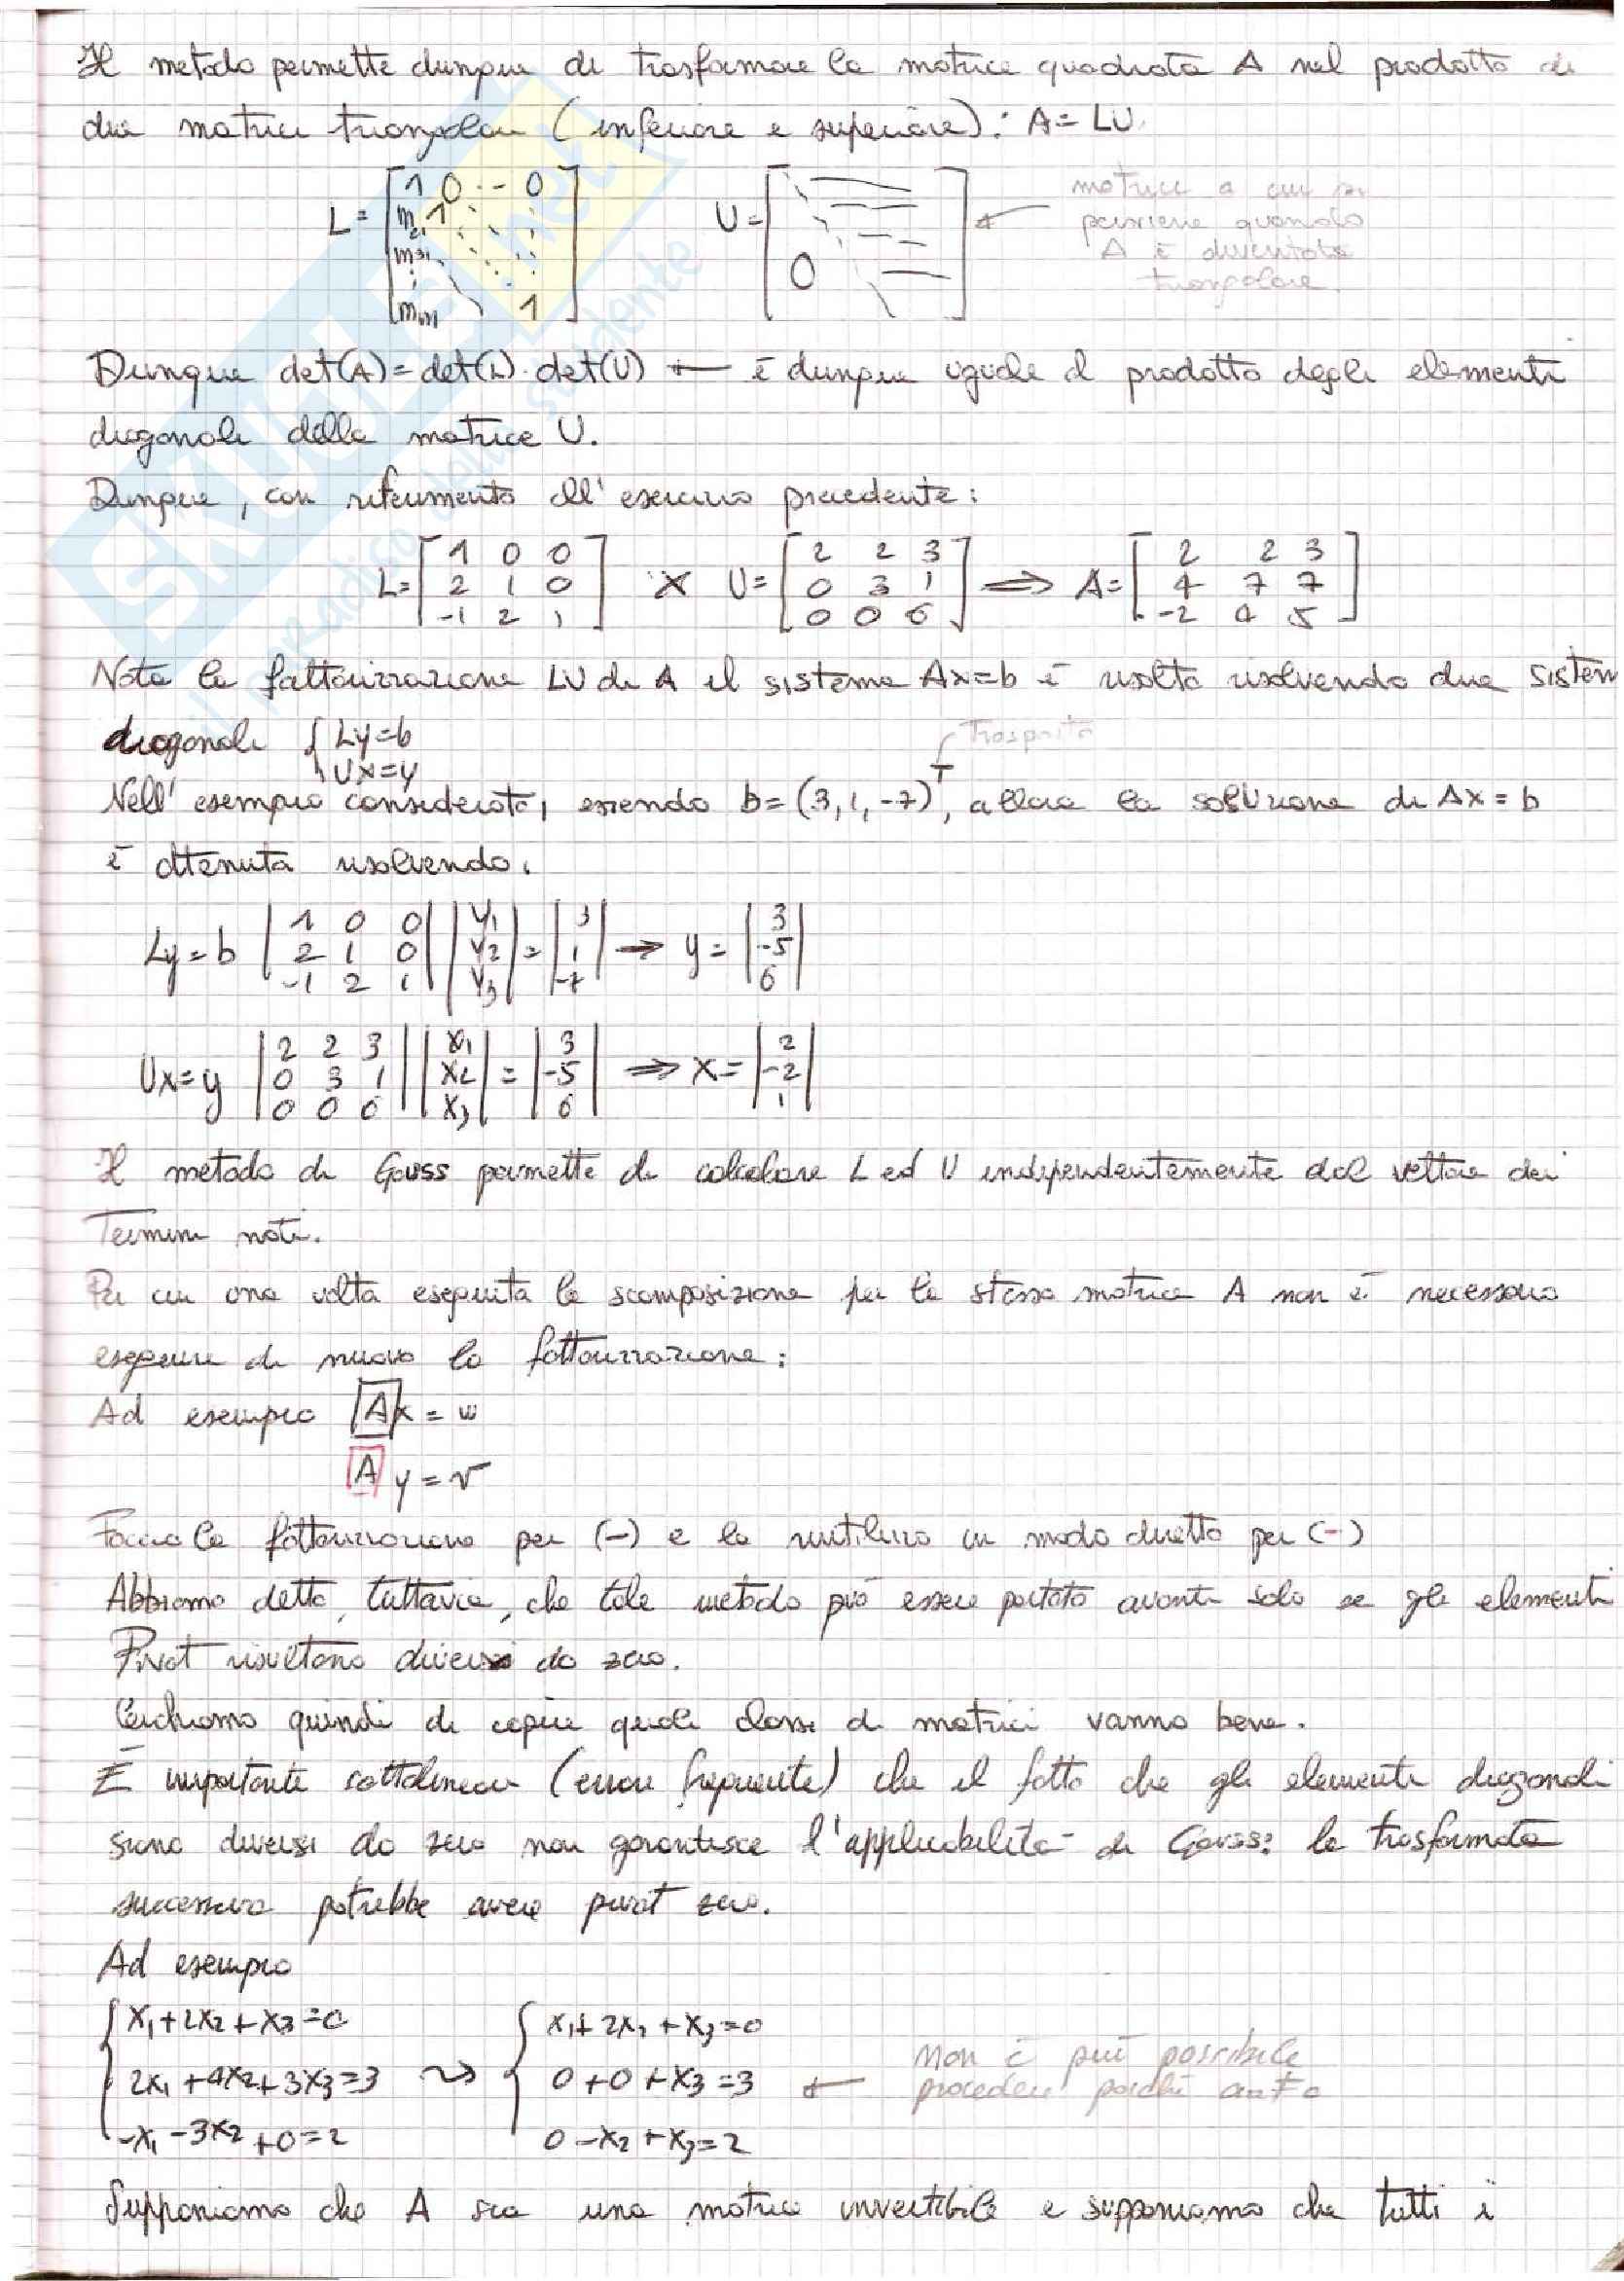 Il metodo permette dunque di trasformare la matrice quadrata A nel prodotto di
due matrici triangolari (inferiore e superiore): A = LU.
L = [1 0 ·· 0
m21 1
m31
⋮
mm1 1] U = [0] ← matrice a cui si
perviene quando
A è diventata
triangolare.
Dunque det(A) = det(L) · det(U) ← è dunque uguale al prodotto degli elementi
diagonali della matrice U.
Dunque, con riferimento all'esercizio precedente:
L = [1 0 0; 2 1 0; -1 2 1] X U = [2 2 3; 0 3 1; 0 0 6] ⟹ A = [2 2 3; 4 7 7; -2 4 5]
Nota la fattorizzazione LU di A il sistema Ax = b è risolto risolvendo due sistem
diagonali { Ly = b
Ux = y
Trasposto
Nell'esempio considerato, essendo b = (3, 1, -7)ᵀ, allora la soluzione di Ax = b
è ottenuta risolvendo.
Ly = b |1 0 0; 2 1 0; -1 2 1| |y1; y2; y3| = |3; 1; -7| → y = |3; -5; 6|
Ux = y |2 2 3; 0 3 1; 0 0 6| |x1; x2; x3| = |3; -5; 6| ⟹ x = |2; -2; 1|
Il metodo di Gauss permette di calcolare L ed U indipendentemente dal vettore dei
Termini noti.
Per cui una volta eseguita la scomposizione per la stessa matrice A non è necessario
eseguire di nuovo la fattorizzazione:
Ad esempio A x = w
A y = v
Faccio la fattorizzazione per (-) e la riutilizzo in modo diretto per (-)
Abbiamo detto, tuttavia, che tale metodo può essere portato avanti solo se gli elementi
Pivot risultano diversi da zero.
Cerchiamo quindi di capire quali classi di matrici vanno bene.
È importante sottolineare (errore frequente) che il fatto che gli elementi diagonali
siano diversi da zero non garantisce l'applicabilità di Gauss: la trasformata
successiva potrebbe avere pivot zero.
Ad esempio
{ x1 + 2x2 + x3 = 0 { x1 + 2x2 + x3 = 0
2x1 + 4x2 + 3x3 = 3 ⤳ 0 + 0 + x3 = 3 ← non è più possibile
procedere poiché
-x1 - 3x2 + 0 = 2 0 - x2 + x3 = 2
Supponiamo che A sia una matrice invertibile e supponiamo che tutti i
SKUOLA.net
il paradiso dello studente